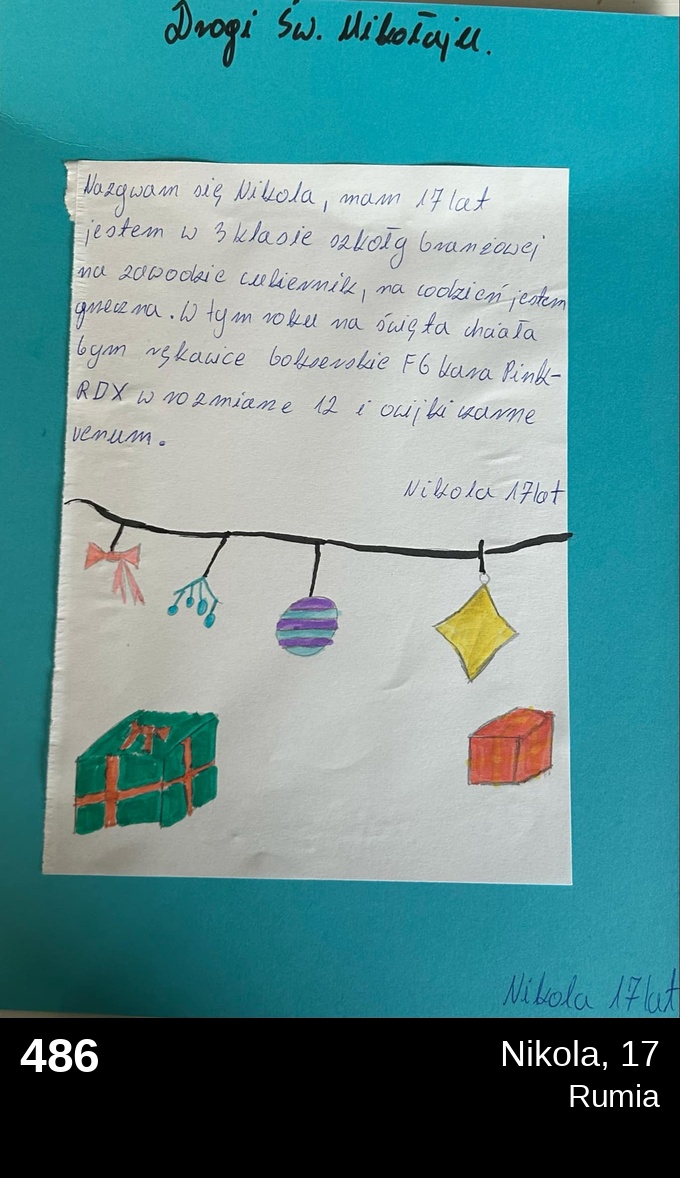 Drogi Św. Mikołaju.
Nazywam się Nikola, mam 17 lat
jestem w 3 klasie szkoły branżowej
na zawodzie cukiernik, na codzień jestem
grzeczna. W tym roku na święta chciała
bym rękawice bokserskie F6 kara Pink-
RDX w rozmiarze 12 i owijki czarne
venum.
Nikola 17lat
Nikola 17lat
486
Nikola, 17
Rumia